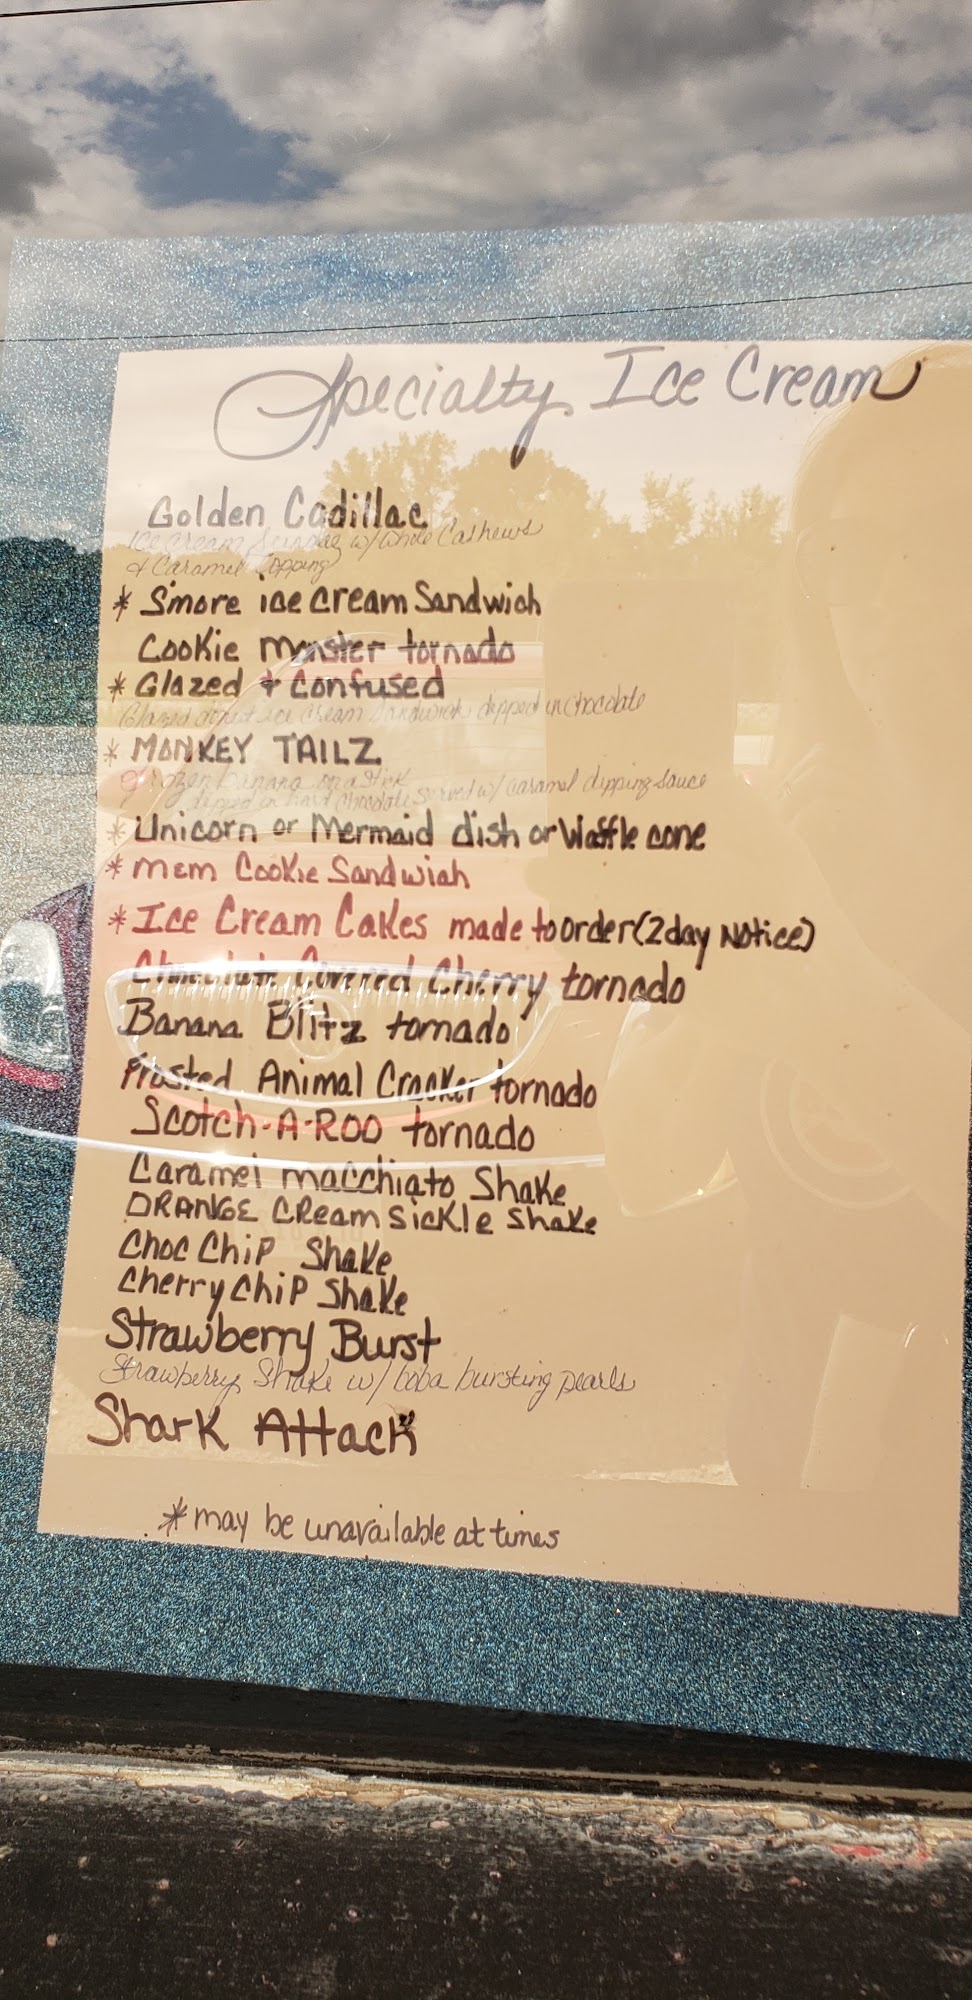 Specialty Ice Cream
Golden Cadillac
Ice Cream Sundae w/ Whole Cashews
& Caramel Topping
* S'more ice cream Sandwich
Cookie monster tornado
* Glazed & Confused
Glazed donut ice cream sandwich dipped in chocolate
* MONKEY TAILZ
Frozen banana on a stick
dipped in hard chocolate served w/ caramel dipping sauce
* Unicorn or Mermaid dish or Waffle cone
* mem Cookie Sandwich
* Ice Cream Cakes made to order (2 day Notice)
Chocolate Covered Cherry tornado
Banana Blitz tornado
Frosted Animal Cracker tornado
Scotch-A-Roo tornado
Caramel macchiato Shake
ORANGE CReam Sickle Shake
Choc Chip Shake
Cherry Chip Shake
Strawberry Burst
Strawberry Shake w/ boba bursting pearls
Shark Attack
* may be unavailable at times